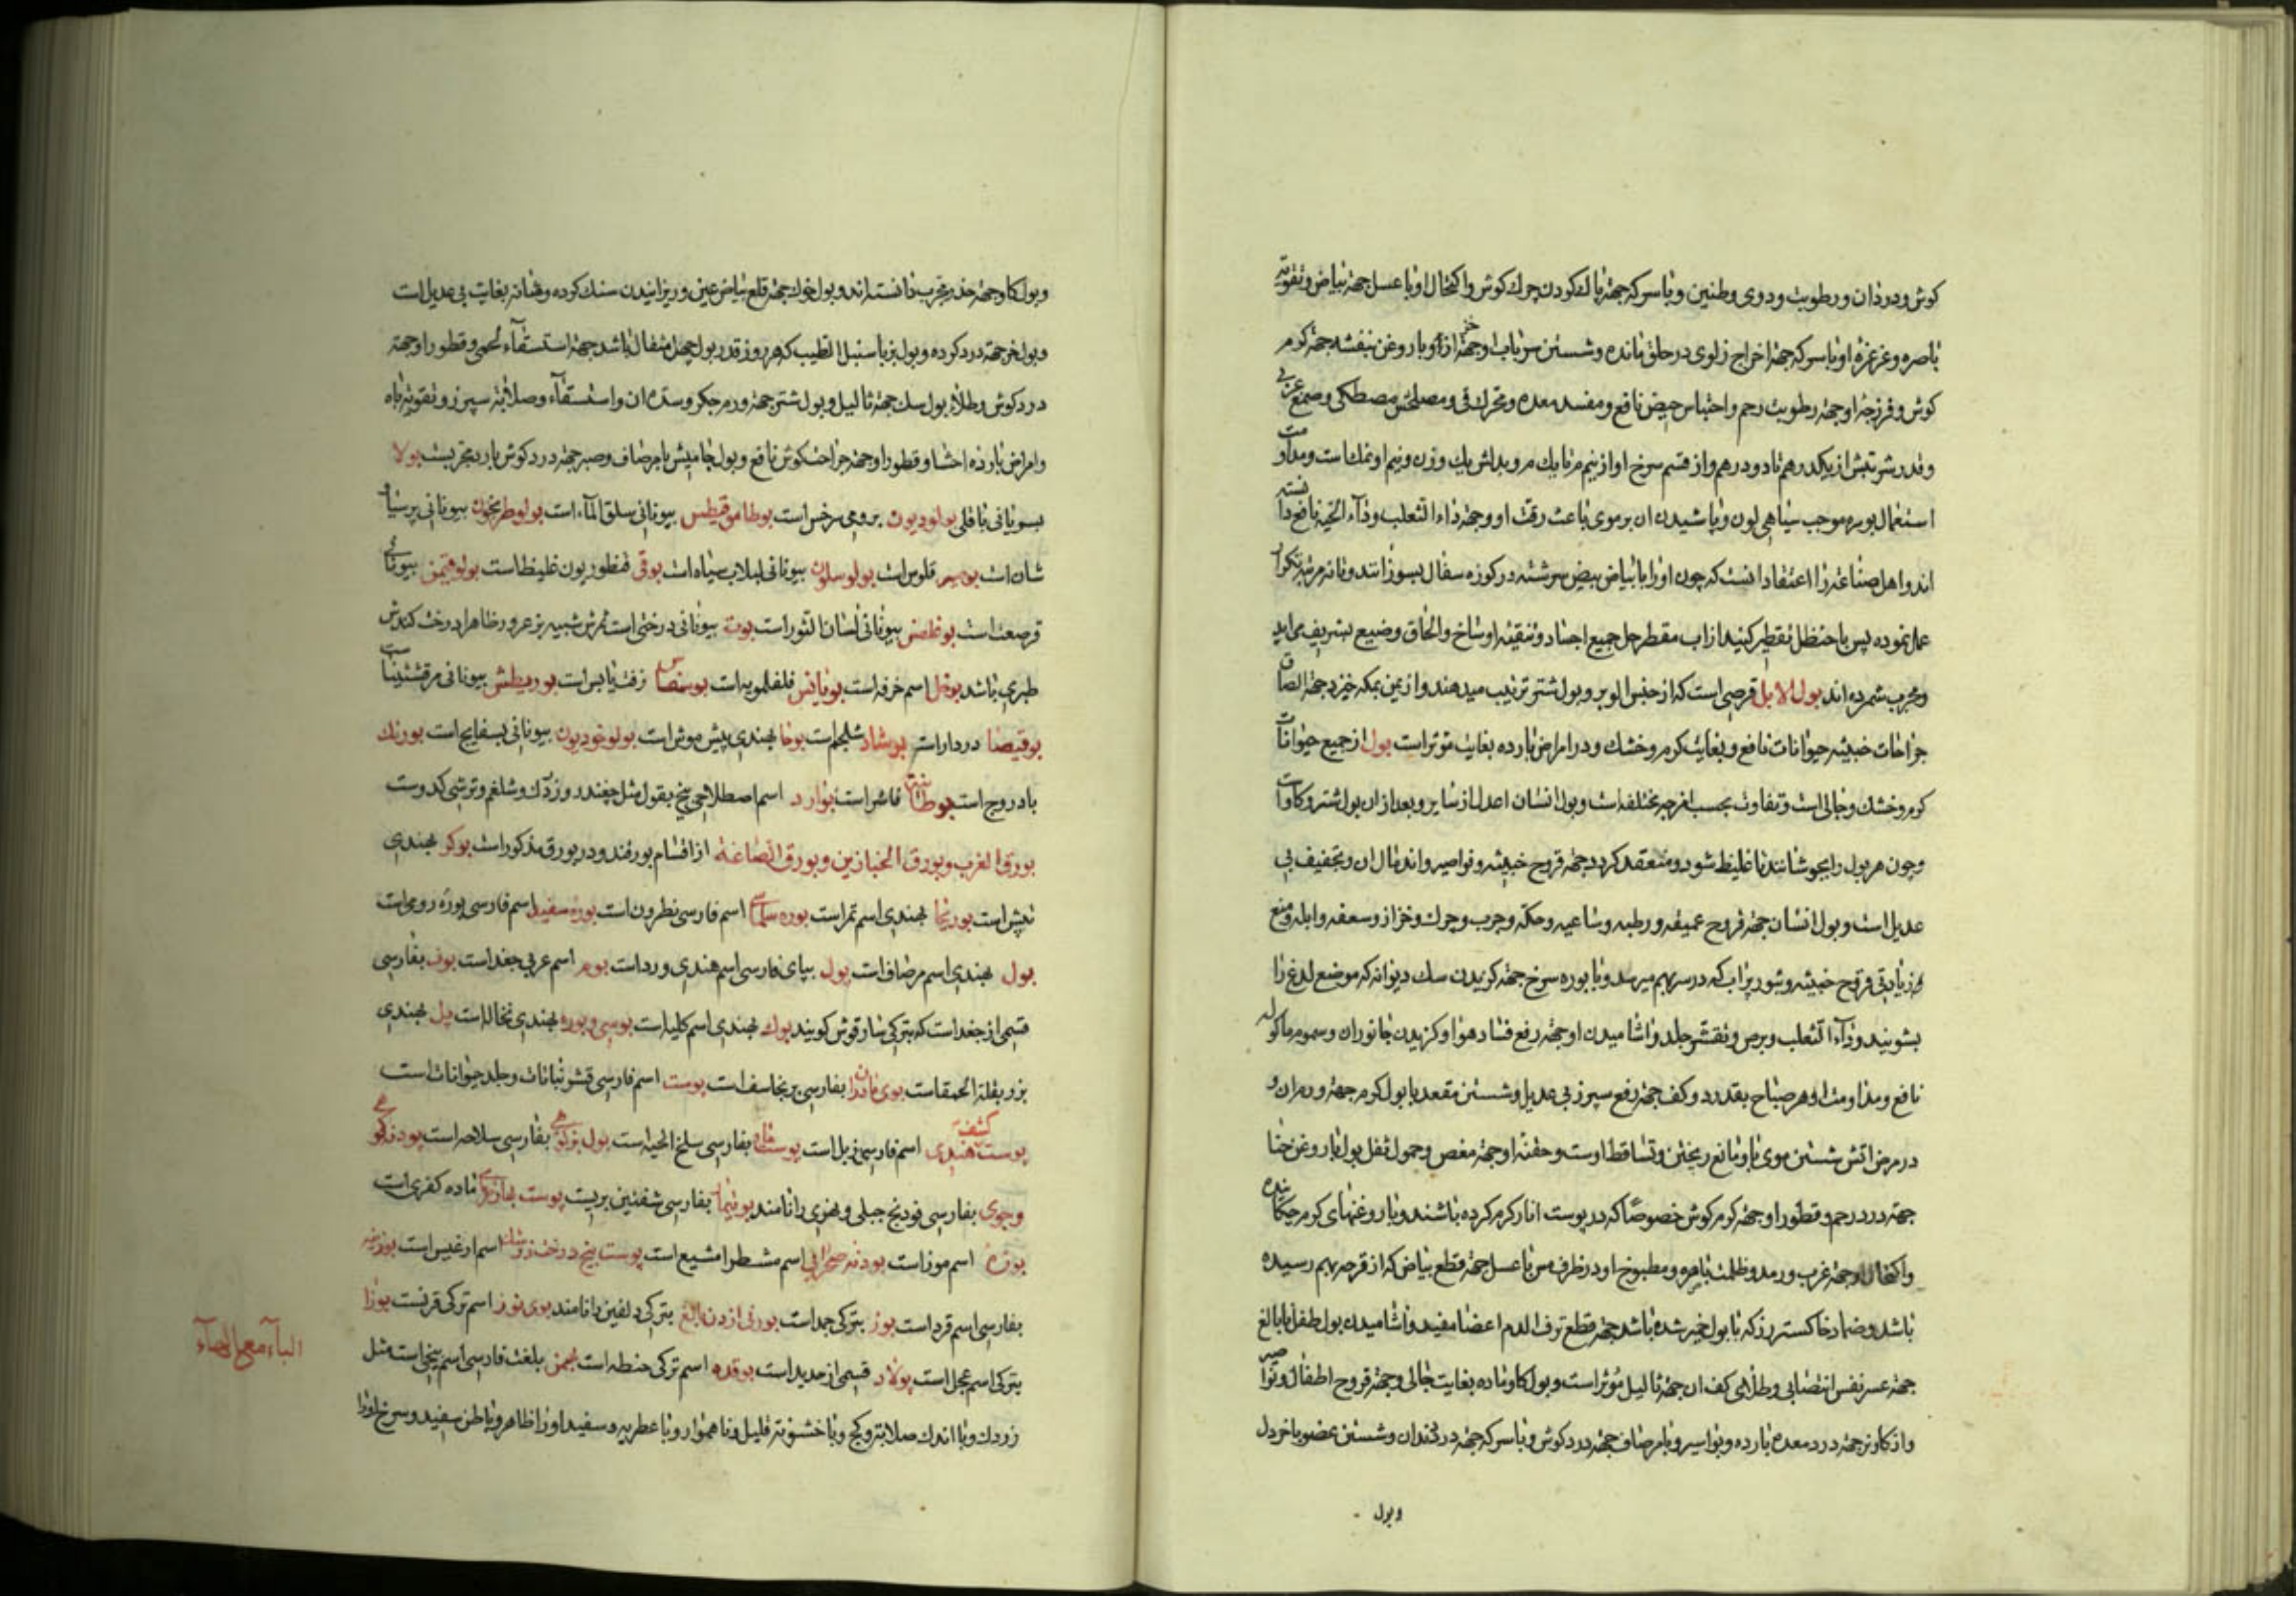 کوش و درد ان و رطوبت و دوی و طنین و با سرکه جهة پاک کردن چرک کوش و اکتحال او با عسل جهة بیاض و تقویة
باصره و غرغره او با سرکه جهة اخراج زلوی در حلق مانده و شستن سر با او جهة حزاز او با روغن بنفشه جهة کرم
کوش و فرزجه او جهة رطوبت رحم و احتباس حیض نافع و مفسد معده و محرک قی و مصلحش مصطکی و صمغ عربی
و قدر شربتش از یکدرهم تا دو درهم و از قسم سرخ او از نیم تا یک و بدلش یک وزن و نیم او نمک است و مداومت
استعمال بوره موجب سیاهی لون و پاشیدن ان بر موی باعث رقت او و جهة داء الثعلب و داء الحیه نافع دانسته
اند و اهل صناعه را اعتقاد انست که چون او را با بیاض بیض سرشته در کوزه سفال بسوزانند و نه مرتبه تکرار
عمل نموده پس با حنظل تقطیر کنند از اب مقطر حل جمیع اجساد و تنقیه اوساخ و الحاق وضیع بشریف می اید
و مجرب شمرده اند بول الابل قرصی است که از جنس الوبر و بول شتر ترتیب میدهند و از یمن بمکه خیزد جهة الصاق
جراحات خبیثه حیوانات نافع و بغایت کرم و خشک و در امراض بارده بغایت موثر است بول از جمیع حیوانات
کرم و خشک و جالی است و تفاوت بحسب امزجه مختلفه است و بول انسان اعدل از سایر و بعد از ان بول شتر و کاو است
و چون هر بول را بجوشانند تا غلیظ شود و منعقد کردد جهة قروح خبیثه و نواصیر و اندمال ان و تجفیف بی
عدیل است و بول انسان جهة قروح عمیقه و رطبه و ساعیه و حکه و جرب و چرک و حزاز و سعفه و ابله و منع
زیادتی قروح خبیثه و بثور پراب که در سر بهم میرسد و با بوره سرخ جهة کزیدن سک دیوانه که موضع لدغ را
بشویند و داء الثعلب و برص و تقشر جلد و اشامیدن او جهة رفع فساد هوا و کزیدن جانوران و سموم ماکوله
نافع و مداومت او هر صباح بقدر دو کف جهة رفع سپرز بی عدیل و شستن مقعد با بول کرم جهة ورم ان و
در مرض اتش شستن موی با او مانع ریختن و تساقط اوست و حقنه او جهة مغص و حمول ثفل بول با روغن حنا
جهة درد رحم و قطور او جهة کرم کوش خصوصا که در پوست انار کرم کرده باشند و با روغنهای کرم چکانیده
و اکتحال او جهة غرب و رمد و ظلمت باصره و مطبوخ او در ظرف مس با عسل جهة قطع بیاض که از قرحه بهم رسیده
باشد و ضماد خاکستر رز که با بول خمیر شده باشد جهة قطع نزف الدم اعضا مفید و اشامیدن بول طفل نابالغ
جهة عسر نفس انتصابی و طلای کف ان جهة ثالیل موثر است و بول کاو ماده بغایت جالی و جهة قروح اطفال و نواصیر
و از کاو نر جهة درد معده بارده و بواسیر و با مرصاف جهة درد کوش و با سرکه جهة درد دندان و شستن عضو با خردل
و بول
و بول کاو جهة مجرب دانسته اند و بول خوک جهة قلع بیاض عین و ریزانیدن سنک کرده و مثانه بغایت بی عدیل است
و بول خر جهة درد کرده و بول بز با سنبل الطیب که هر روز قدر بول چهل مثقال باشد جهة استسقاء لحمی و قطور او جهة
درد کوش و طلاء بول سک جهة ثالیل و بول شتر جهة ورم جکر و سده ان و استسقاء و صلابة سپرز و تقویة باه
و امراض بارده احشا و قطور او جهة جراحت کوش نافع و بول جامیش با مرصاف و صبر جهة درد کوش بارد مجربست بولا
بسریانی باقلی بولودیون برومی سرخس است بوطاموقیطس بیونانی سلق الماء است بولوطریخون بیونانی پرسیاو
شان است قلومس است بیونانی لبلاب سیاه است بوقی قنطوریون غلیظ است بیونانی
قرصعنه است بوغلصن بیونانی لسان الثور است بوته بیونانی درختی است ثمرش شبیه بزعرور ظاهرا درخت کندش
طبری باشد بوخل اسم خرفه است بونیانس فلفلمویه است زفت یابس است بوریطش بیونانی مرقشیثا است
بوقیصا دردار است بوشاد شلجم است بوخا بهندی پیش موش است بولوخودیون بیونانی بسفایج است بورنک
بادروج است فاشرا است بوارد اسم اصطلاحی یخ بقول مثل چغندر و زردک و شلغم و ترشی کدوست
بورق الغرب و بورق الخبازین و بورق الصاغه از اقسام بورقند و در بورق مذکور است بوکر بهندی
بیش است بورنجا بهندی اسم تمر است بوره اسم فارسی نطرون است بوره سفید اسم فارسی بوره رومی است
بول بهندی اسم مرصاف است پول ببای فارسی اسم هندی ورد است بوم اسم عربی جغد است بوف بفارسی
قسمی از جغد است که بترکی ساروقوش کویند بوک بهندی اسم کلیا است بوسی و بوره بهندی نخاله است پل بهندی
بزر بقلة الحمقاست بوی مادران بفارسی برنجاسف است پوست اسم فارسی قشر نباتات و جلد حیوانات است
پوست هندی اسم فارسی زبل است پوست مار بفارسی سلخ الحیه است بول بفارسی سلاحه است پودنه کوهی
و جوی بفارسی فودنج جبلی و نهری را نامند بوتیمار بفارسی شفنین بریست پوست بهار ماده کفری است
بوزه اسم موز است پودنه صحرایی اسم مشکطرامشیع است پوست بیخ درخت زرشک اسم ارغیس است بوزینه
بفارسی اسم قرد است بوز بترکی جمد است بترکی دلفین را نامند بوی نوز اسم ترکی قرنست بوزا
بترکی اسم عجل است پولاد قسمی از حدید است بوقده اسم ترکی حنطه است بهمن بلغت فارسی اسم بیخی است مثل
زردک و با اندک صلابة و کجی و با خشونة قلیل و ناهموار و با عطریه و سفید او را ظاهر و باطن سفید و سرخ او را
الباء مع الهاء